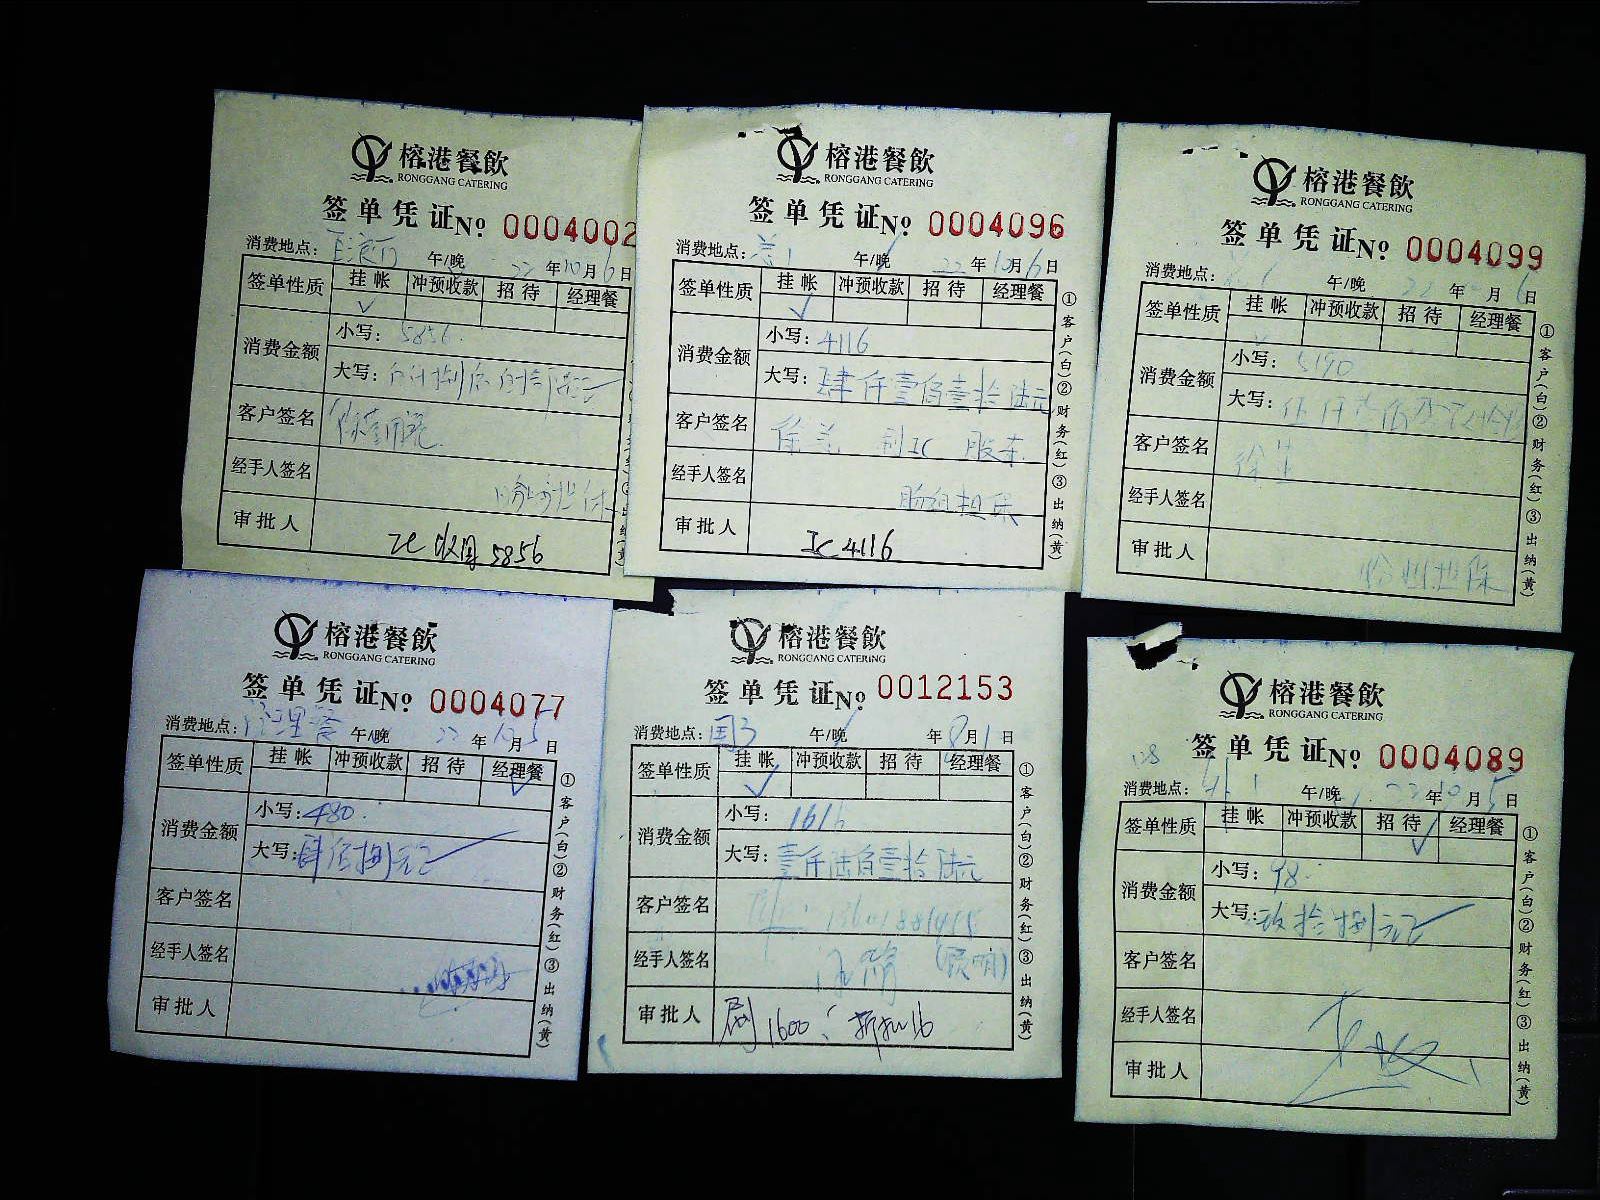 榕港餐飲
RONGGANG CATERING
签单凭证No 0004002
消费地点： 午/晚 22年10月6日
签单性质 挂帐 冲预收款 招待 经理餐
✓
消费金额 小写：5856.
大写：
客户签名
经手人签名
审批人 收国 5856
榕港餐飲
RONGGANG CATERING
签单凭证No 0004096
消费地点： 午/晚 22年10月6日
签单性质 挂帐 冲预收款 招待 经理餐
✓
消费金额 小写：4116
大写：肆仟壹佰壹拾陆元
客户签名 股东
经手人签名 担保
审批人 IC 4116
①客户(白)②财务(红)③出纳(黄)
榕港餐飲
RONGGANG CATERING
签单凭证No 0004099
消费地点： 午/晚 22年 月6日
签单性质 挂帐 冲预收款 招待 经理餐
消费金额 小写：5190
大写：
客户签名 徐生
经手人签名
审批人 担保
①客户(白)②财务(红)③出纳(黄)
榕港餐飲
RONGGANG CATERING
签单凭证No 0004077
消费地点：经理餐 午/晚 22年10月5日
签单性质 挂帐 冲预收款 招待 经理餐
✓
消费金额 小写：480.
大写：肆佰捌元正
客户签名
经手人签名
审批人
①客户(白)②财务(红)③出纳(黄)
榕港餐飲
RONGGANG CATERING
签单凭证No 0012153
消费地点：国3 午/晚 年8月1日
签单性质 挂帐 冲预收款 招待 经理餐
✓
消费金额 小写：1616
大写：壹仟陆佰壹拾陆元
客户签名
经手人签名
审批人 刷1600 折扣16
①客户(白)②财务(红)③出纳(黄)
榕港餐飲
RONGGANG CATERING
128 签单凭证No 0004089
消费地点： 午/晚 22年10月5日
签单性质 挂帐 冲预收款 招待 经理餐
✓
消费金额 小写：98.
大写：玖拾捌元正
客户签名
经手人签名
审批人
①客户(白)②财务(红)③出纳(黄)